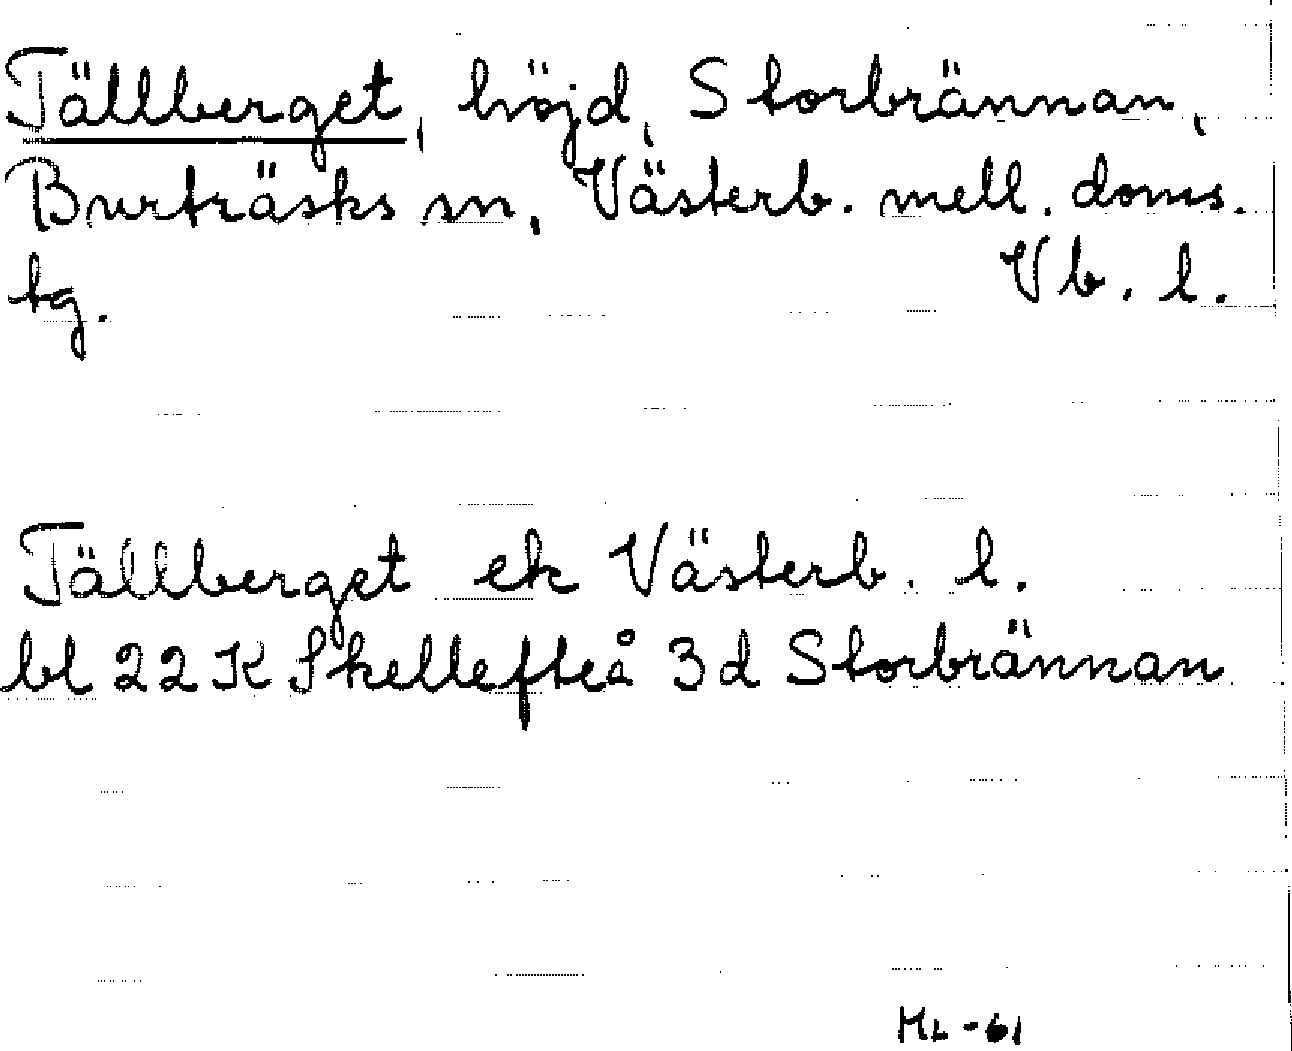 Tällberget, höjd, Storbrännan,
Burträsks sn, Västerb. mell. doms.
tg. Vb. l.
Tällberget ek Västerb. l.
bl 22 K Skellefteå 3 d Storbrännan
HL -61